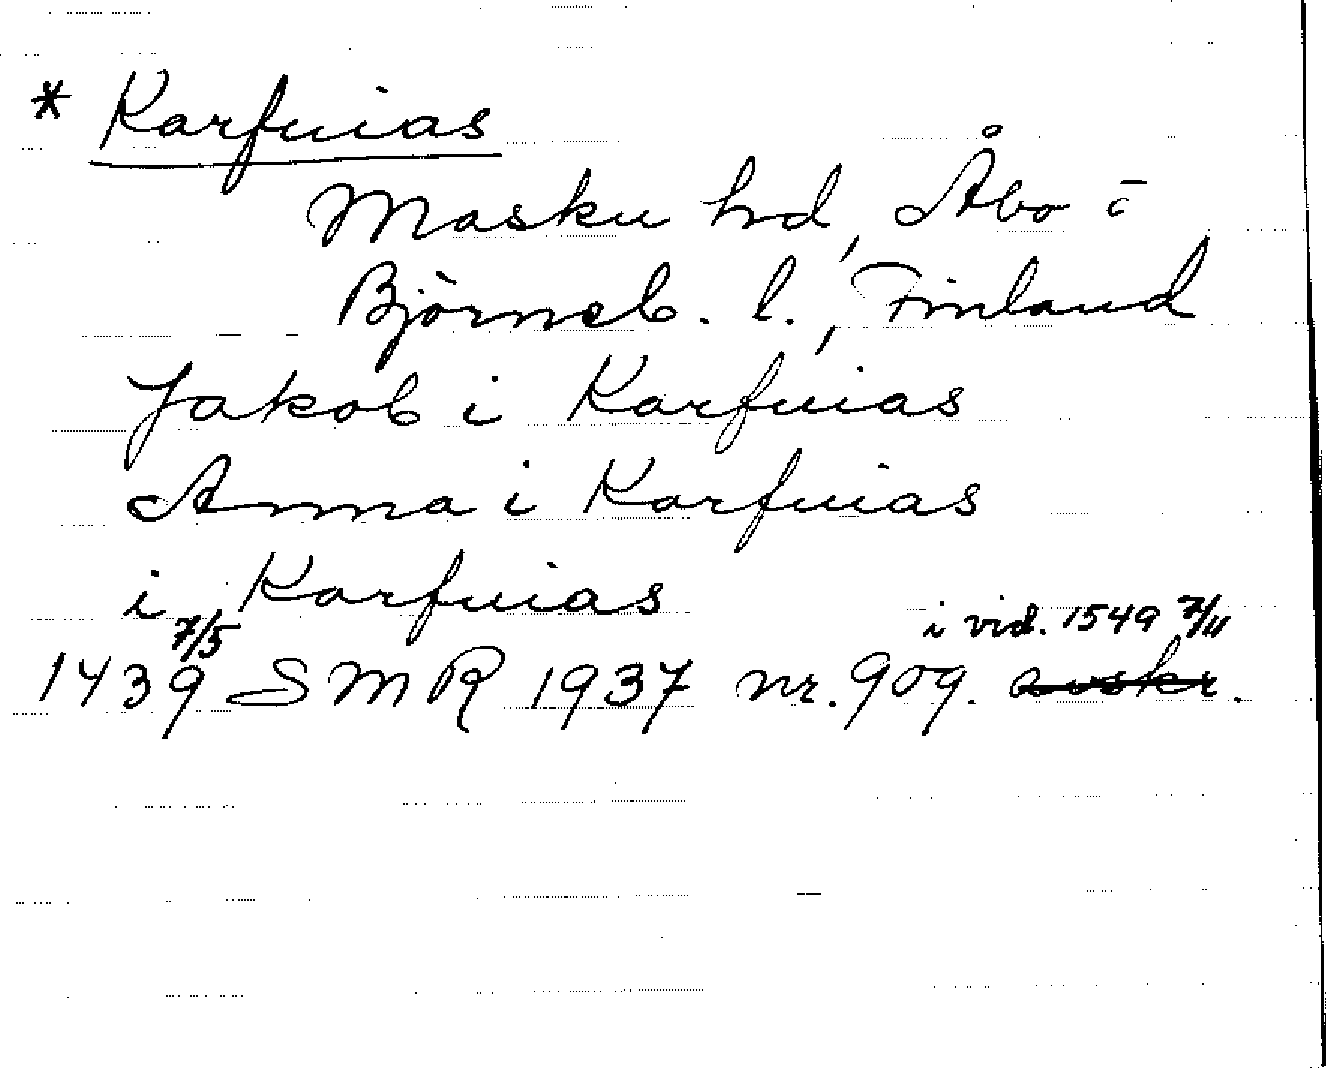 * Karfuias
Masku hd, Åbo o
Björneb. l., Finland
Jakob i Karfuias
Anna i Karfuias
i Karfuias
1439 7/5 SMR 1937 nr. 909. i vid. 1549 7/11 avskr.